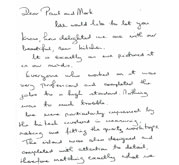 Dear Paul and Mark
We would like to let you
know how delighted we are with our
beautiful, new kitchen.
It is exactly as we pictured it
in our minds.
Everyone who worked on it was
very professional and completed the
jobs to a high standard. Nothing
was to much trouble.
We were particularly impressed by
the
making and fitting the quartz worktops.
The island was designed and
completed with attention to detail,
therefore matching exactly what we